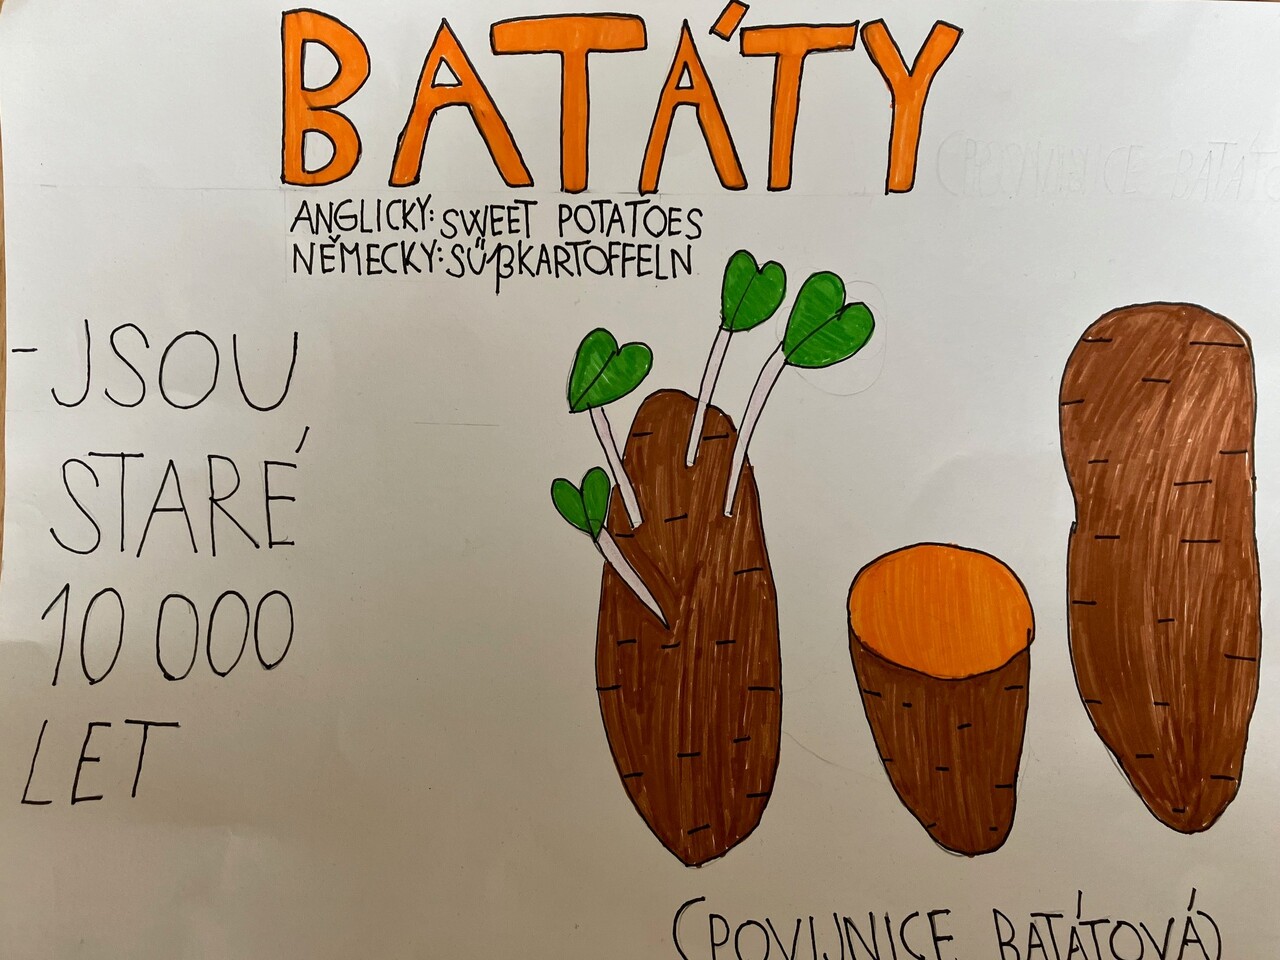 BATÁTY
ANGLICKY: SWEET POTATOES
NĚMECKY: SÜßKARTOFFELN
- JSOU
STARÉ
10 000
LET
(POVIJNICE BATÁTOVÁ)